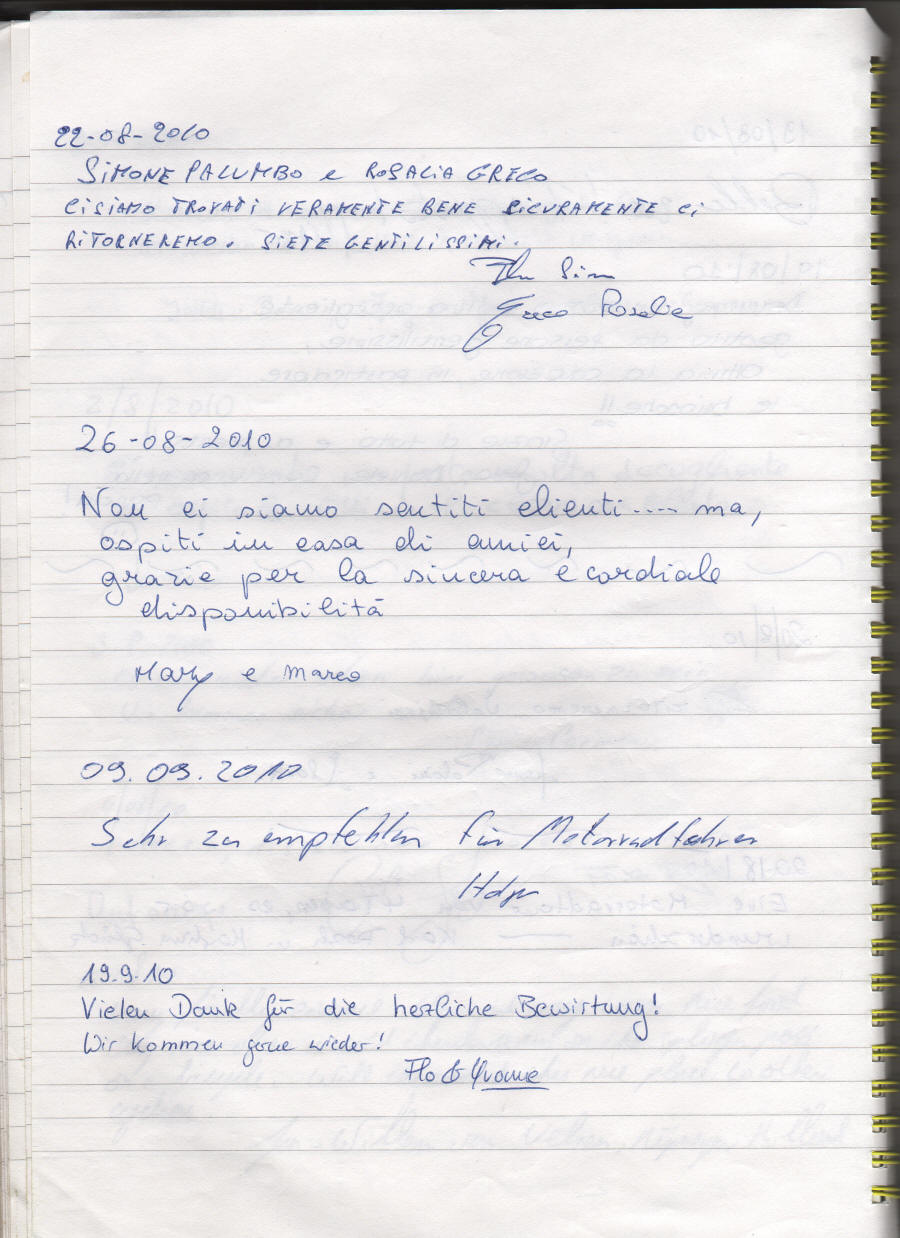 22-08-2010
SIMONE PALUMBO e ROSALIA GRECO
CISIAMO TROVATI VERAMENTE BENE SICURAMENTE CI
RITORNEREMO. SIETE GENTILISSIMI.
Greco Rosalia
26-08-2010
Non ci siamo sentiti clienti.... ma,
ospiti in casa di amici,
grazie per la sincera e cordiale
disponibilità
Mary e Marco
09.09.2010
Sehr zu empfehlen für Motorradfahrer
19.9.10
Vielen Dank für die herzliche Bewirtung!
Wir kommen gerne wieder!
Flo & Yvonne